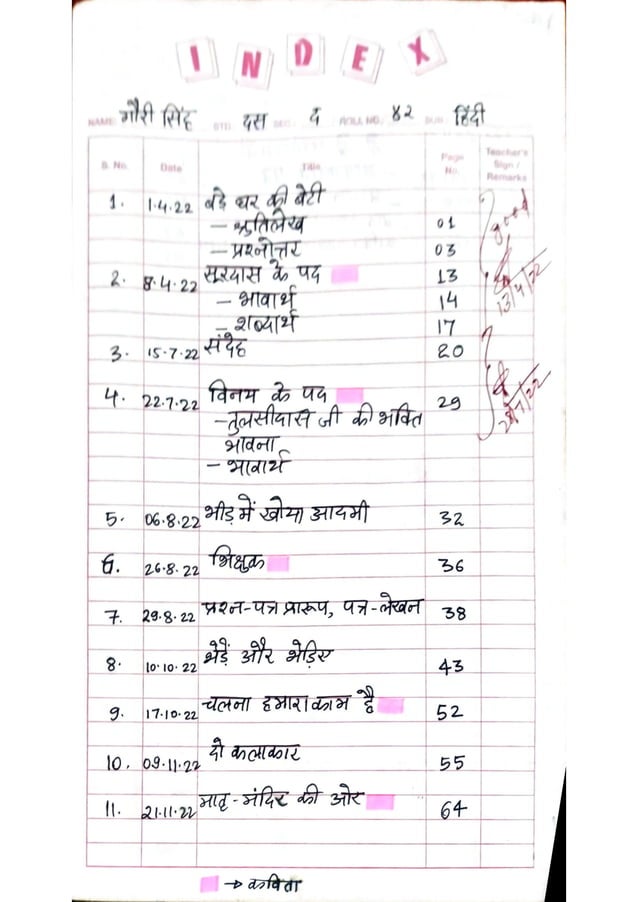 INDEX
NAME: गौरी सिंह STD. दस SEC. द ROLL NO. ४२ SUB. हिंदी
S. No. Date Title Page No. Teacher's Sign / Remarks
1. 1.4.22 बड़े घर की बेटी
– श्रुतिलेख 01 good
– प्रश्नोत्तर 03
2. 8.4.22 सूरदास के पद 13
– भावार्थ 14 13/4/22
– शब्दार्थ 17
3. 15.7.22 संदेह 20
4. 22.7.22 विनय के पद 29
– तुलसीदास जी की भक्ति
भावना
– भावार्थ
5. 06.8.22 भीड़ में खोया आदमी 32
6. 26.8.22 भिक्षुक 36
7. 29.8.22 प्रश्न-पत्र प्रारूप, पत्र-लेखन 38
8. 10.10.22 भेड़ें और भेड़िए 43
9. 17.10.22 चलना हमारा काम है 52
10. 09.11.22 दो कलाकार 55
11. 21.11.22 मातृ-मंदिर की ओर 64
→ कविता